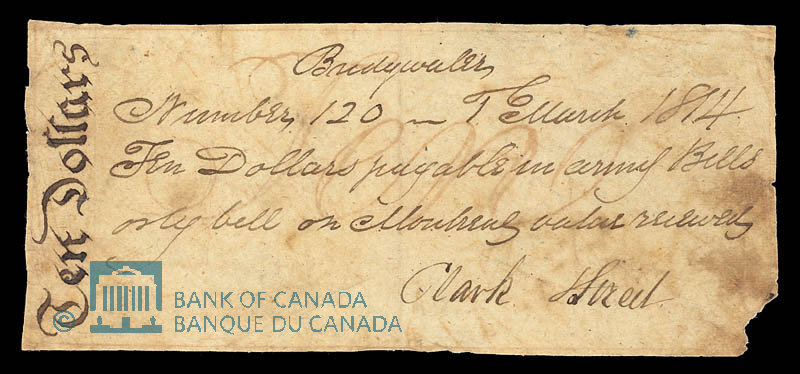 Ten Dollars
Bridgwater
Number 120 — 1 March 1814
Ten Dollars payable in army Bills
or by bill on Montreal value received
Clark Street
© BANK OF CANADA
BANQUE DU CANADA